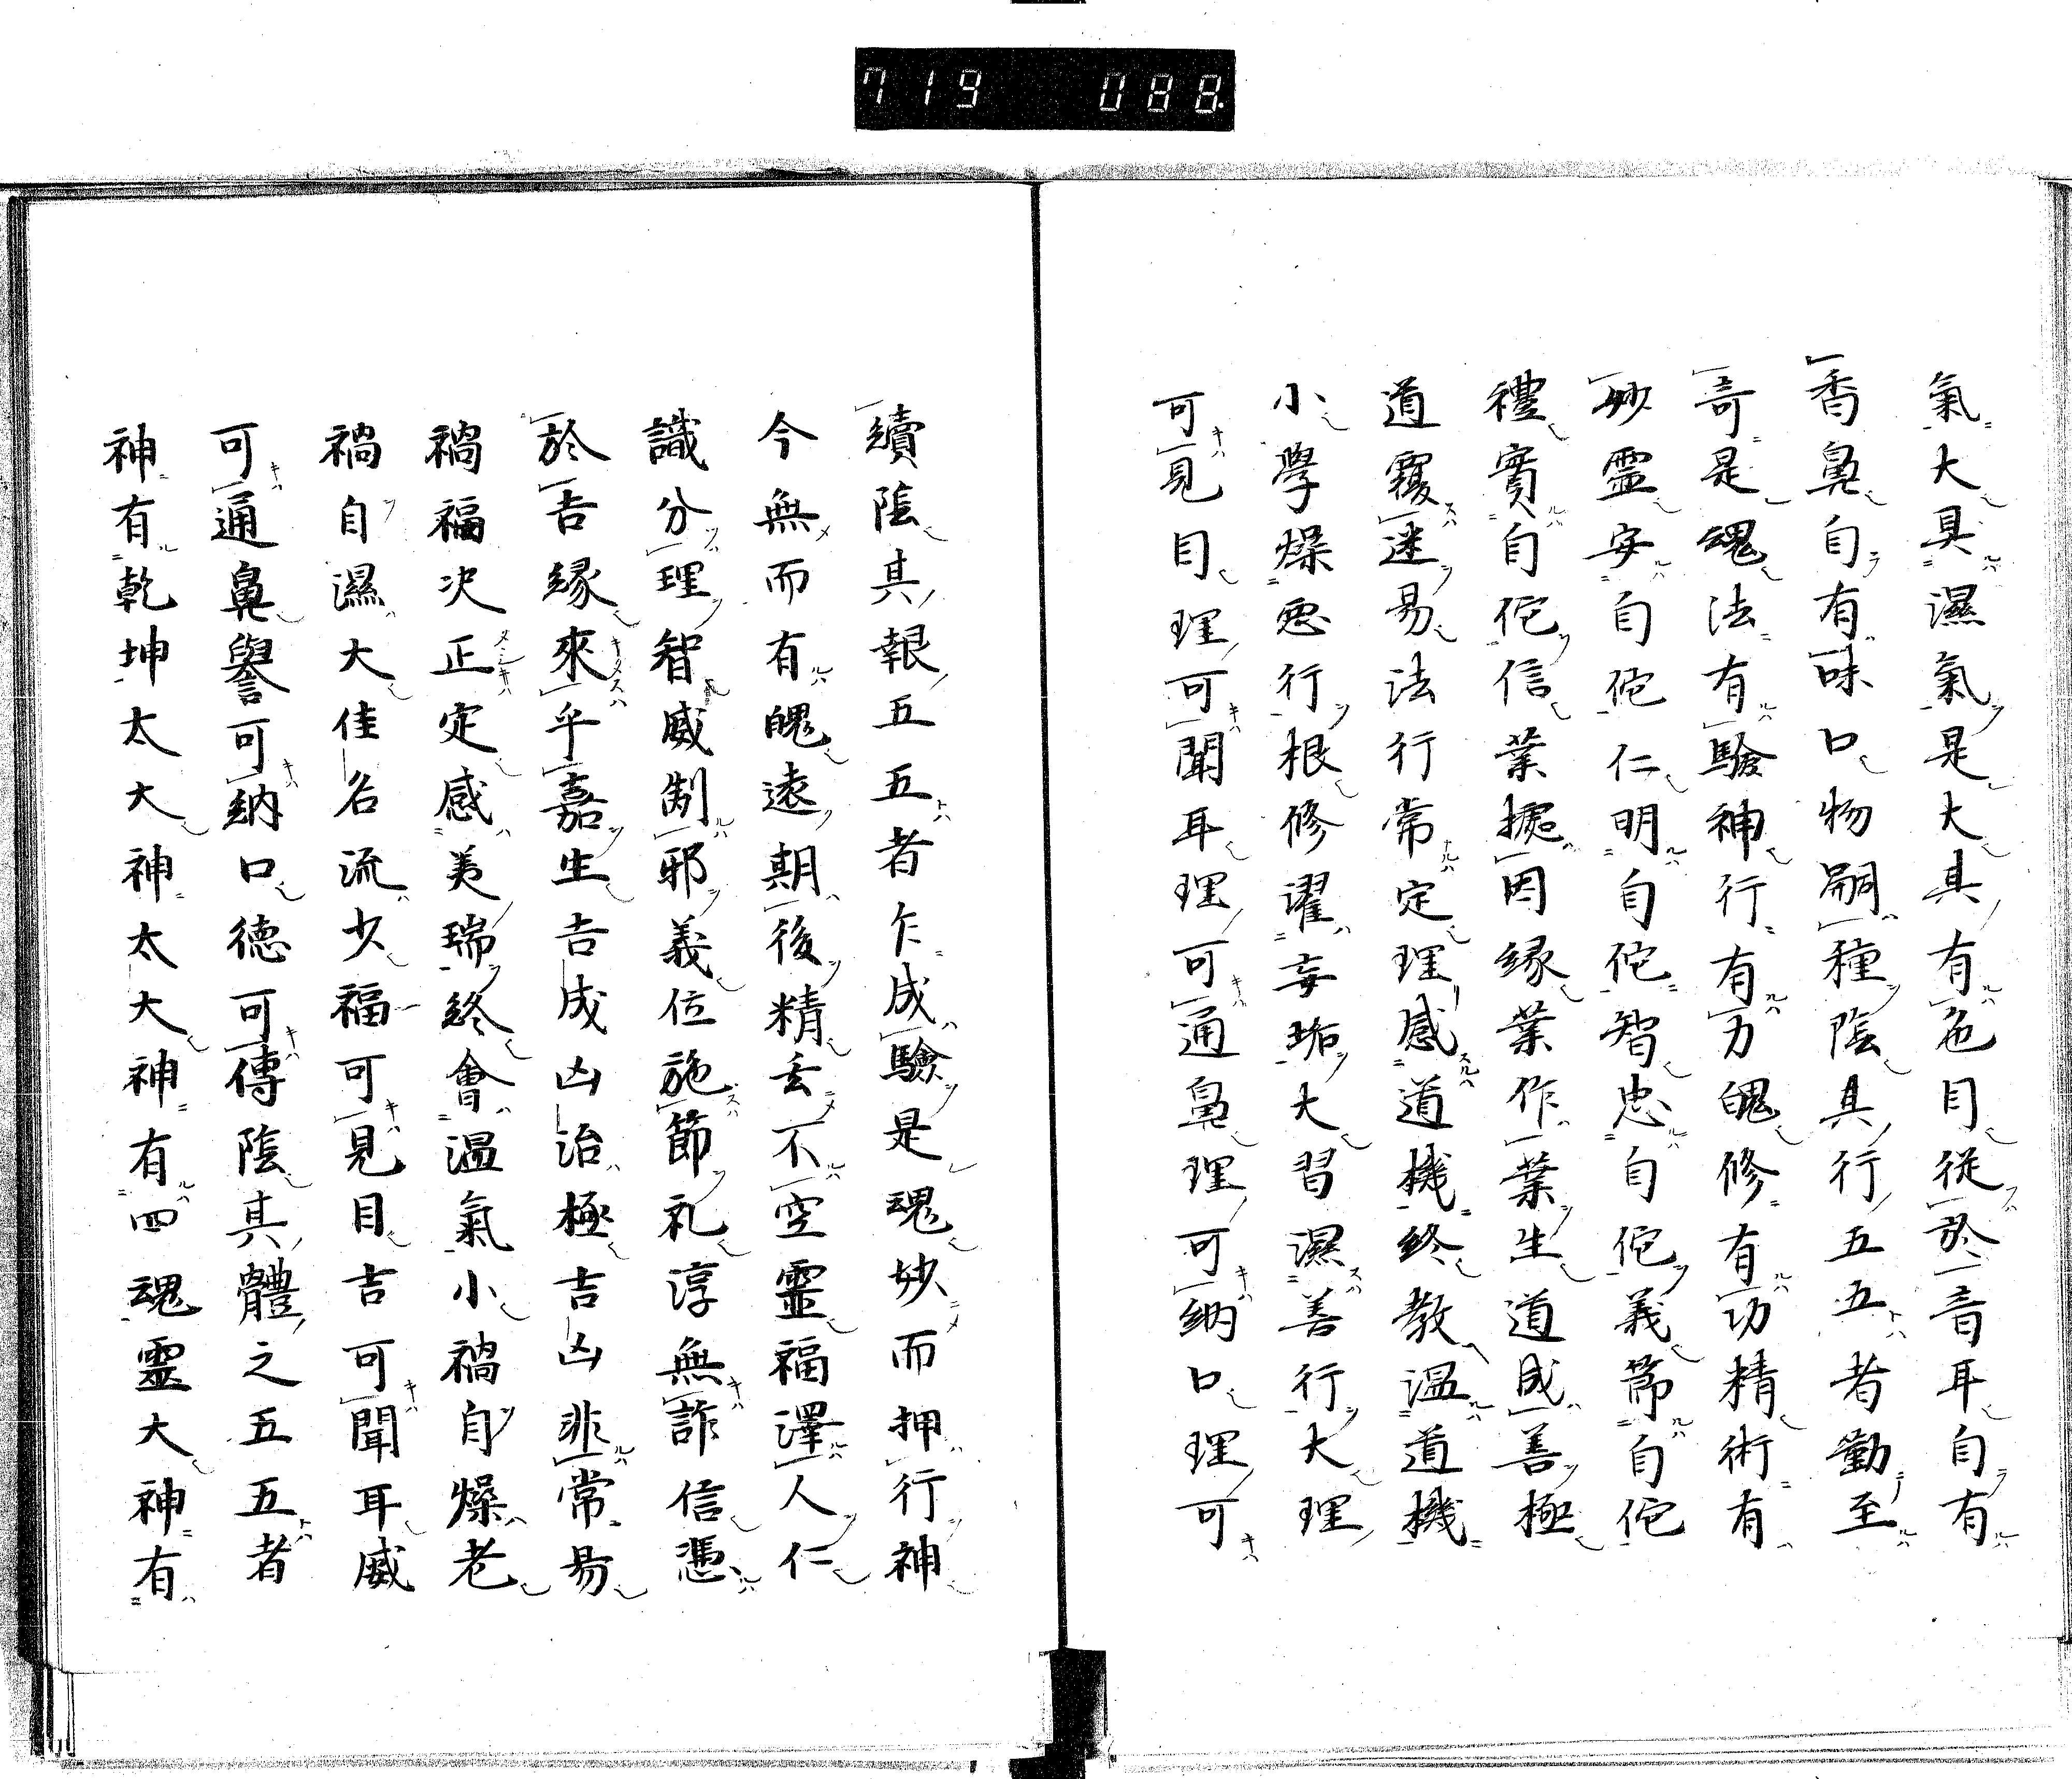 719 088
氣大具濕氣是大具有色目從於音耳自有
香鼻自有味口物嗣種陰具行五五者勤至
奇是魂法有驗神行有力魄修有功精術有
妙霊安自佗仁明自佗智忠自佗義節自佗
禮實自佗信業據因緣業作業生道成善極
道覆迷易法行常定理感道機終教温道機
小學燥惡行根修濯妄垢大習濕善行大理
可見目理可聞耳理可通鼻理可納口理可
續陰其報五五者乍成驗是魂妙而押行神
今無而有魄遠期後精玄不空靈福澤人仁
識分理智威制邪義位施節礼淳無詐信憑
於吉緣來乎嘉生吉成凶治極吉凶非常易
禍福決正定感美瑞終會温氣小禍自燥老
禍自濕大佳名流少福可見目吉可聞耳威
可通鼻譽可納口德可傳陰其體之五五者
神有乾坤太大神太大神有四魂靈大神有